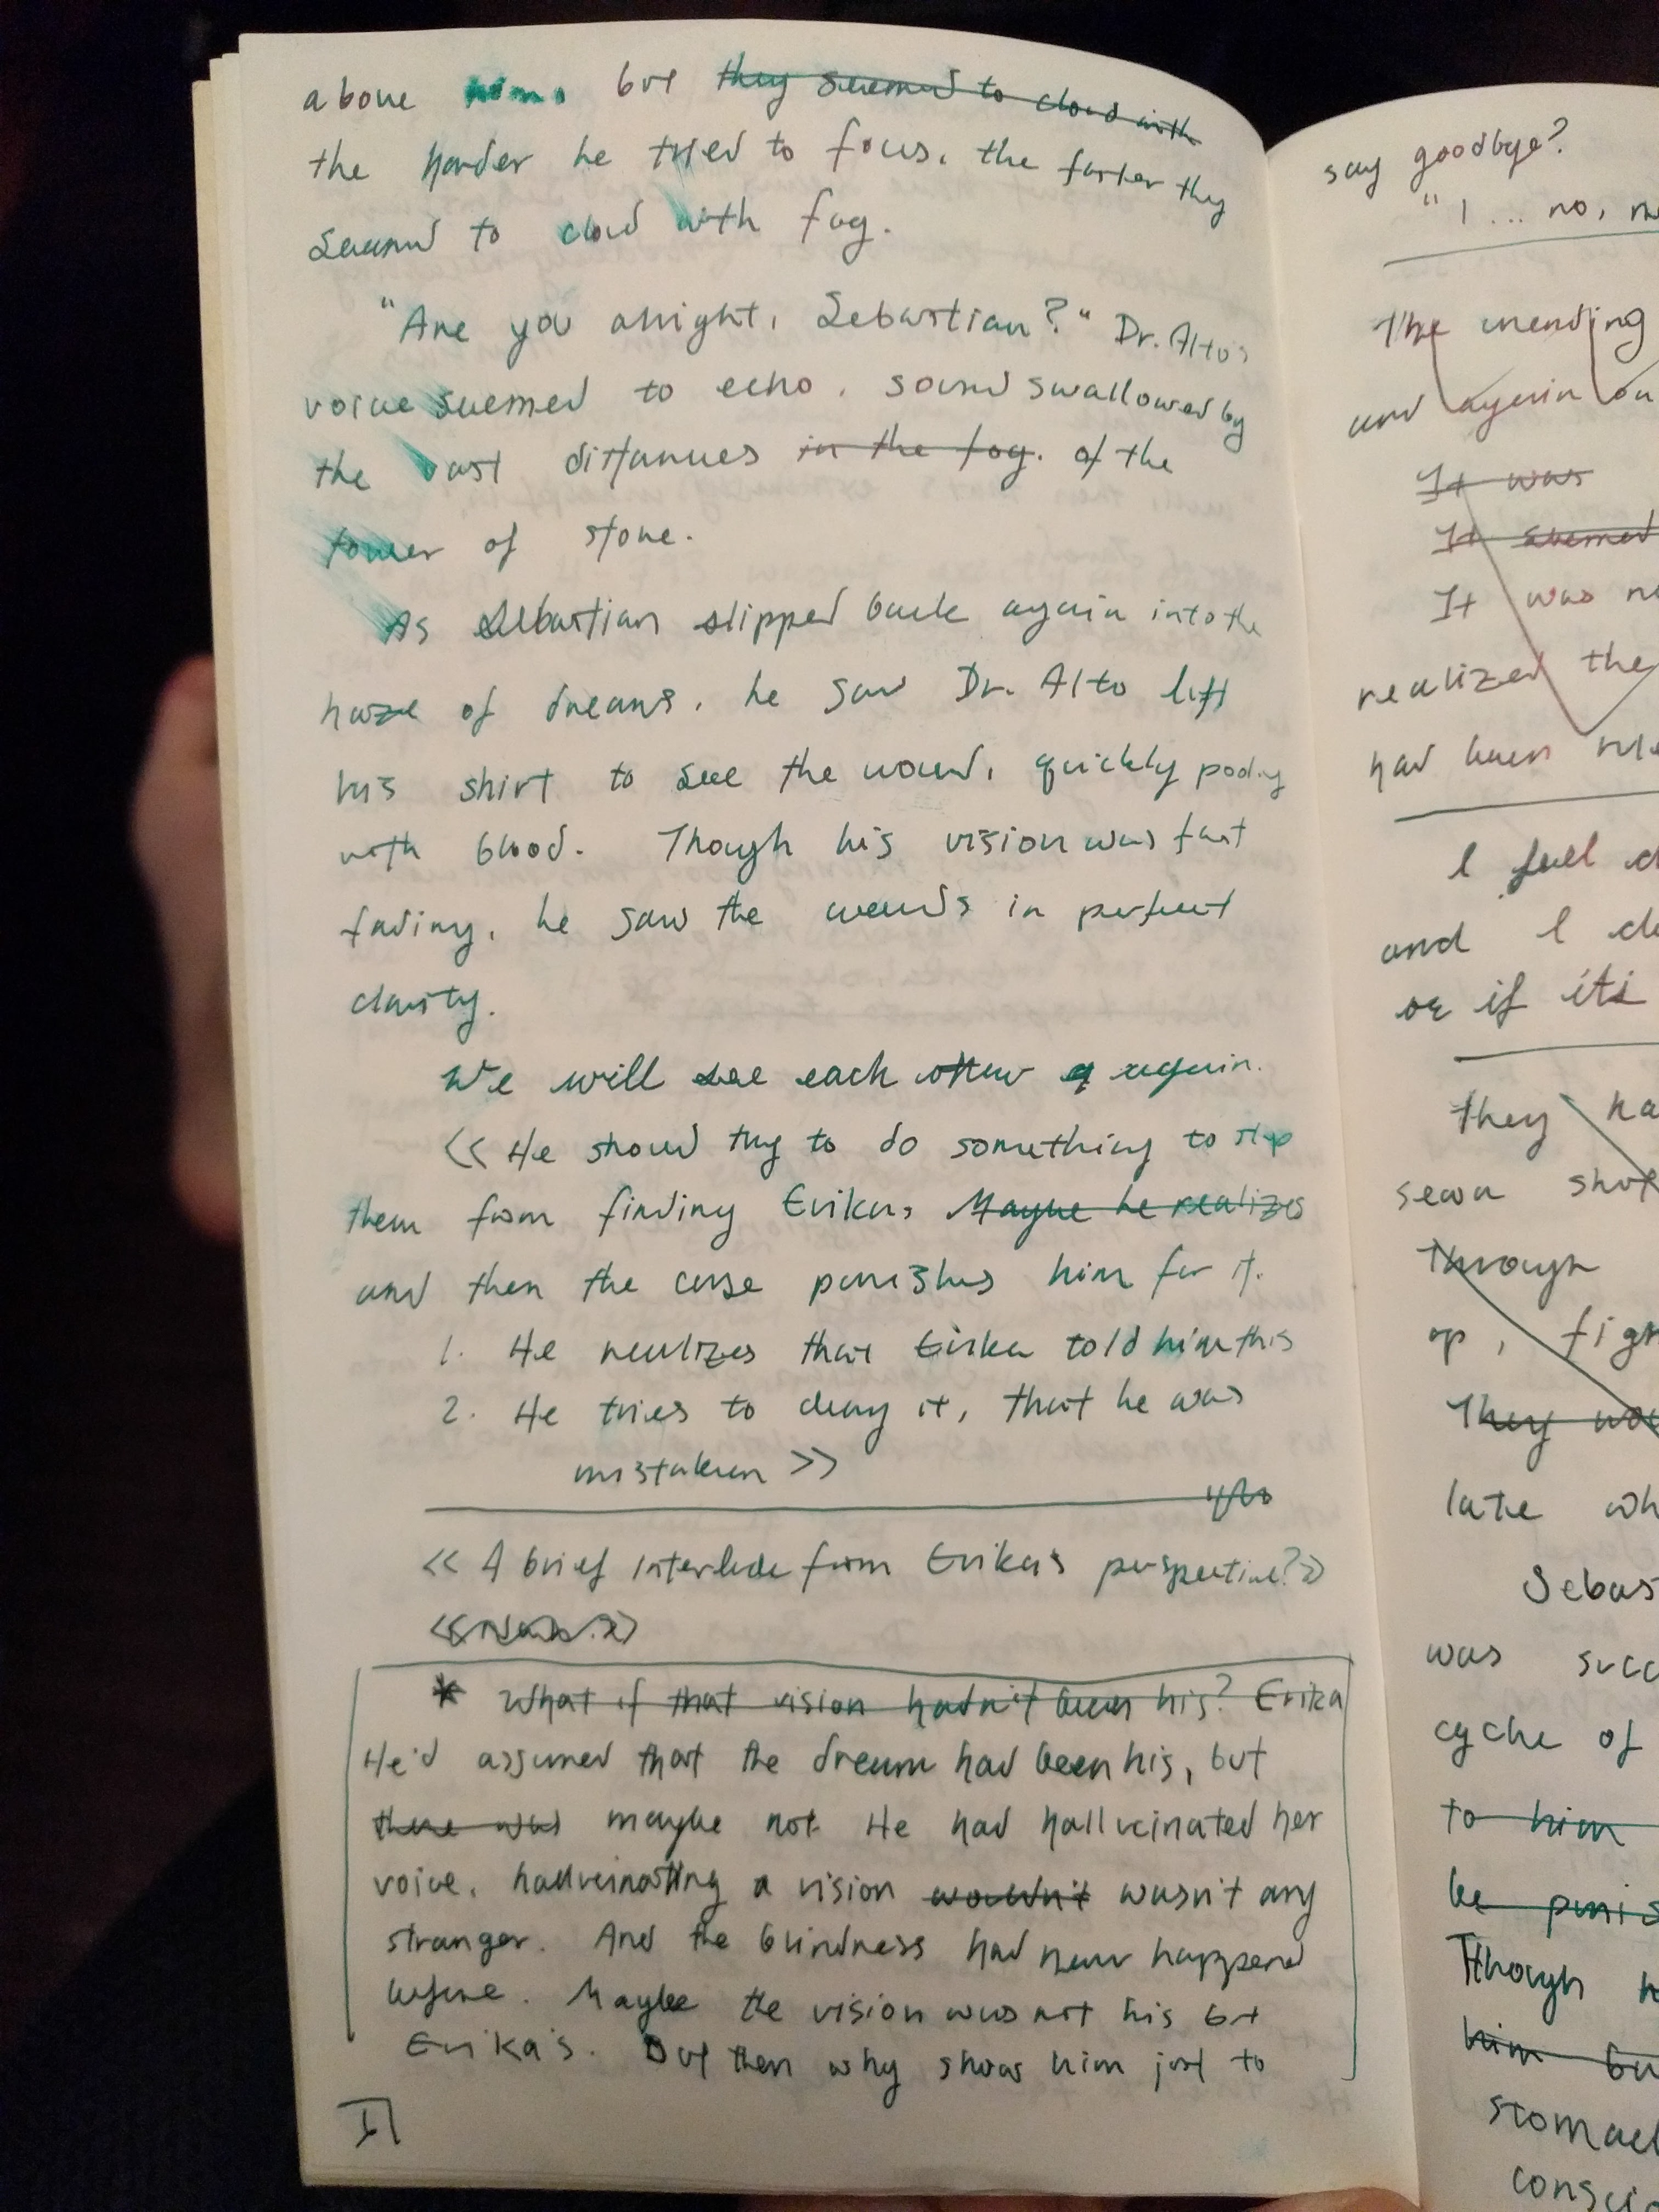 above him, but they seemed to cloud with
the harder he tried to focus, the faster they
seemed to cloud with fog.
"Are you alright, Sebastian?" Dr. Alto's
voice seemed to echo, sound swallowed by
the vast distances in the fog. of the
tower of stone.
As Sebastian slipped back again into the
haze of dreams, he saw Dr. Alto lift
his shirt to see the wound, quickly pooling
with blood. Though his vision was fast
fading, he saw the words in perfect
clarity.
We will see each other again.
<< He should try to do something to stop
them from finding Erika, Maybe he realizes
and then the curse punishes him for it.
1. He realizes that Erika told him this
2. He tries to deny it, that he was
mistaken >>
<< A brief interlude from Erika's perspective? >>
* What if that vision hadn't been his? Erika
He'd assumed that the dream had been his, but
there was maybe not. He had hallucinated her
voice, hallucinating a vision wouldn't wasn't any
stranger. And the blindness had never happened
before. Maybe the vision was not his but
Erika's. But then why show him just to
say goodbye?
"I... no,
The mending
and again on
It was
It seemed
It was
realized the
had been
I feel
and I
or if it's
they
sewn
Through
op,
They
late
Sebas
was succ
cycle of
to him
be punis
Though
him
stomac
consci